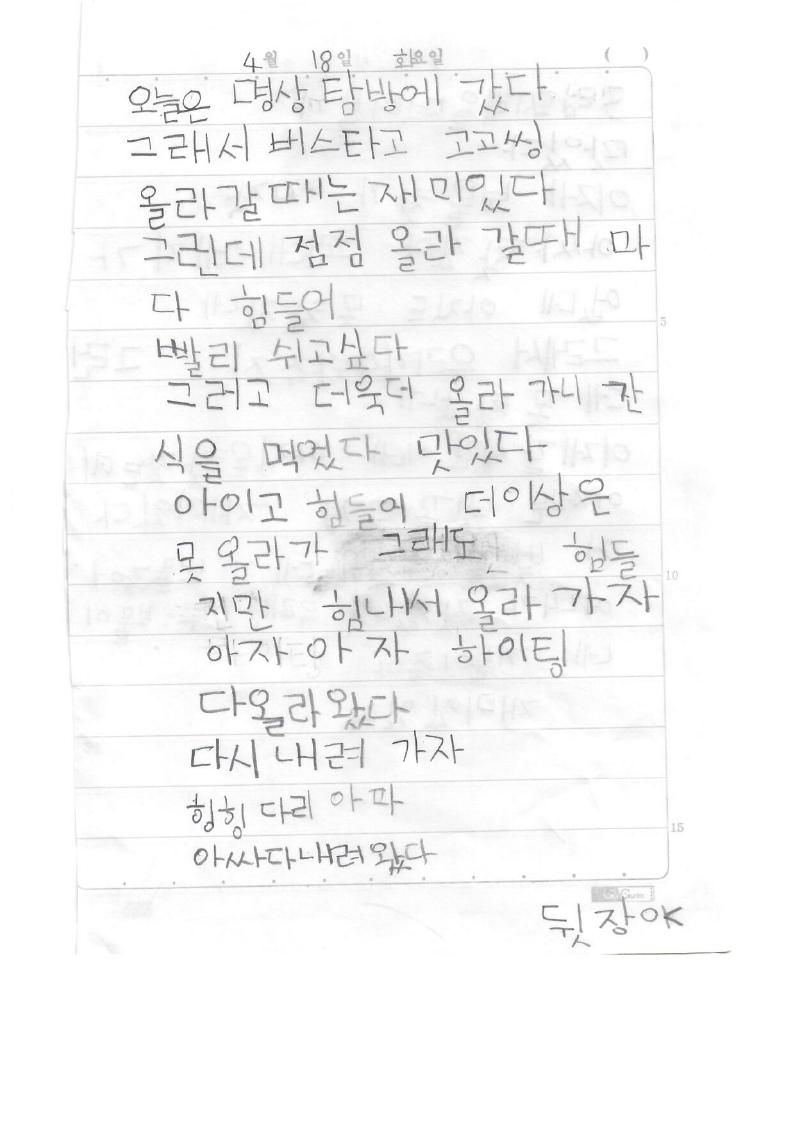 4월 18일 화요일 ( )
오늘은 명상 탐방에 갔다
그래서 버스타고 고고씽
올라갈때는 재미있다
그런데 점점 올라 갈때 마
다 힘들어
빨리 쉬고싶다
그러고 더욱더 올라 가니 간
식을 먹었다 맛있다
아이고 힘들어 더이상은
못 올라가 그래도 힘들
지만 힘내서 올라 가자
아자아 자 하이팅
다올라왔다
다시 내려 가자
힝힝 다리 아파
아싸다내려왔다
5
10
15
뒷장OK